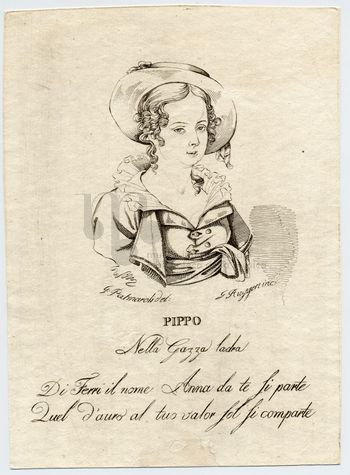 G. Palmaroli del.
G. Ruggeri inc.
PIPPO
Nella Gazza ladra
Di Ferri il nome Anna da te si parte
Quel d'auro al tuo valor sol si comparte